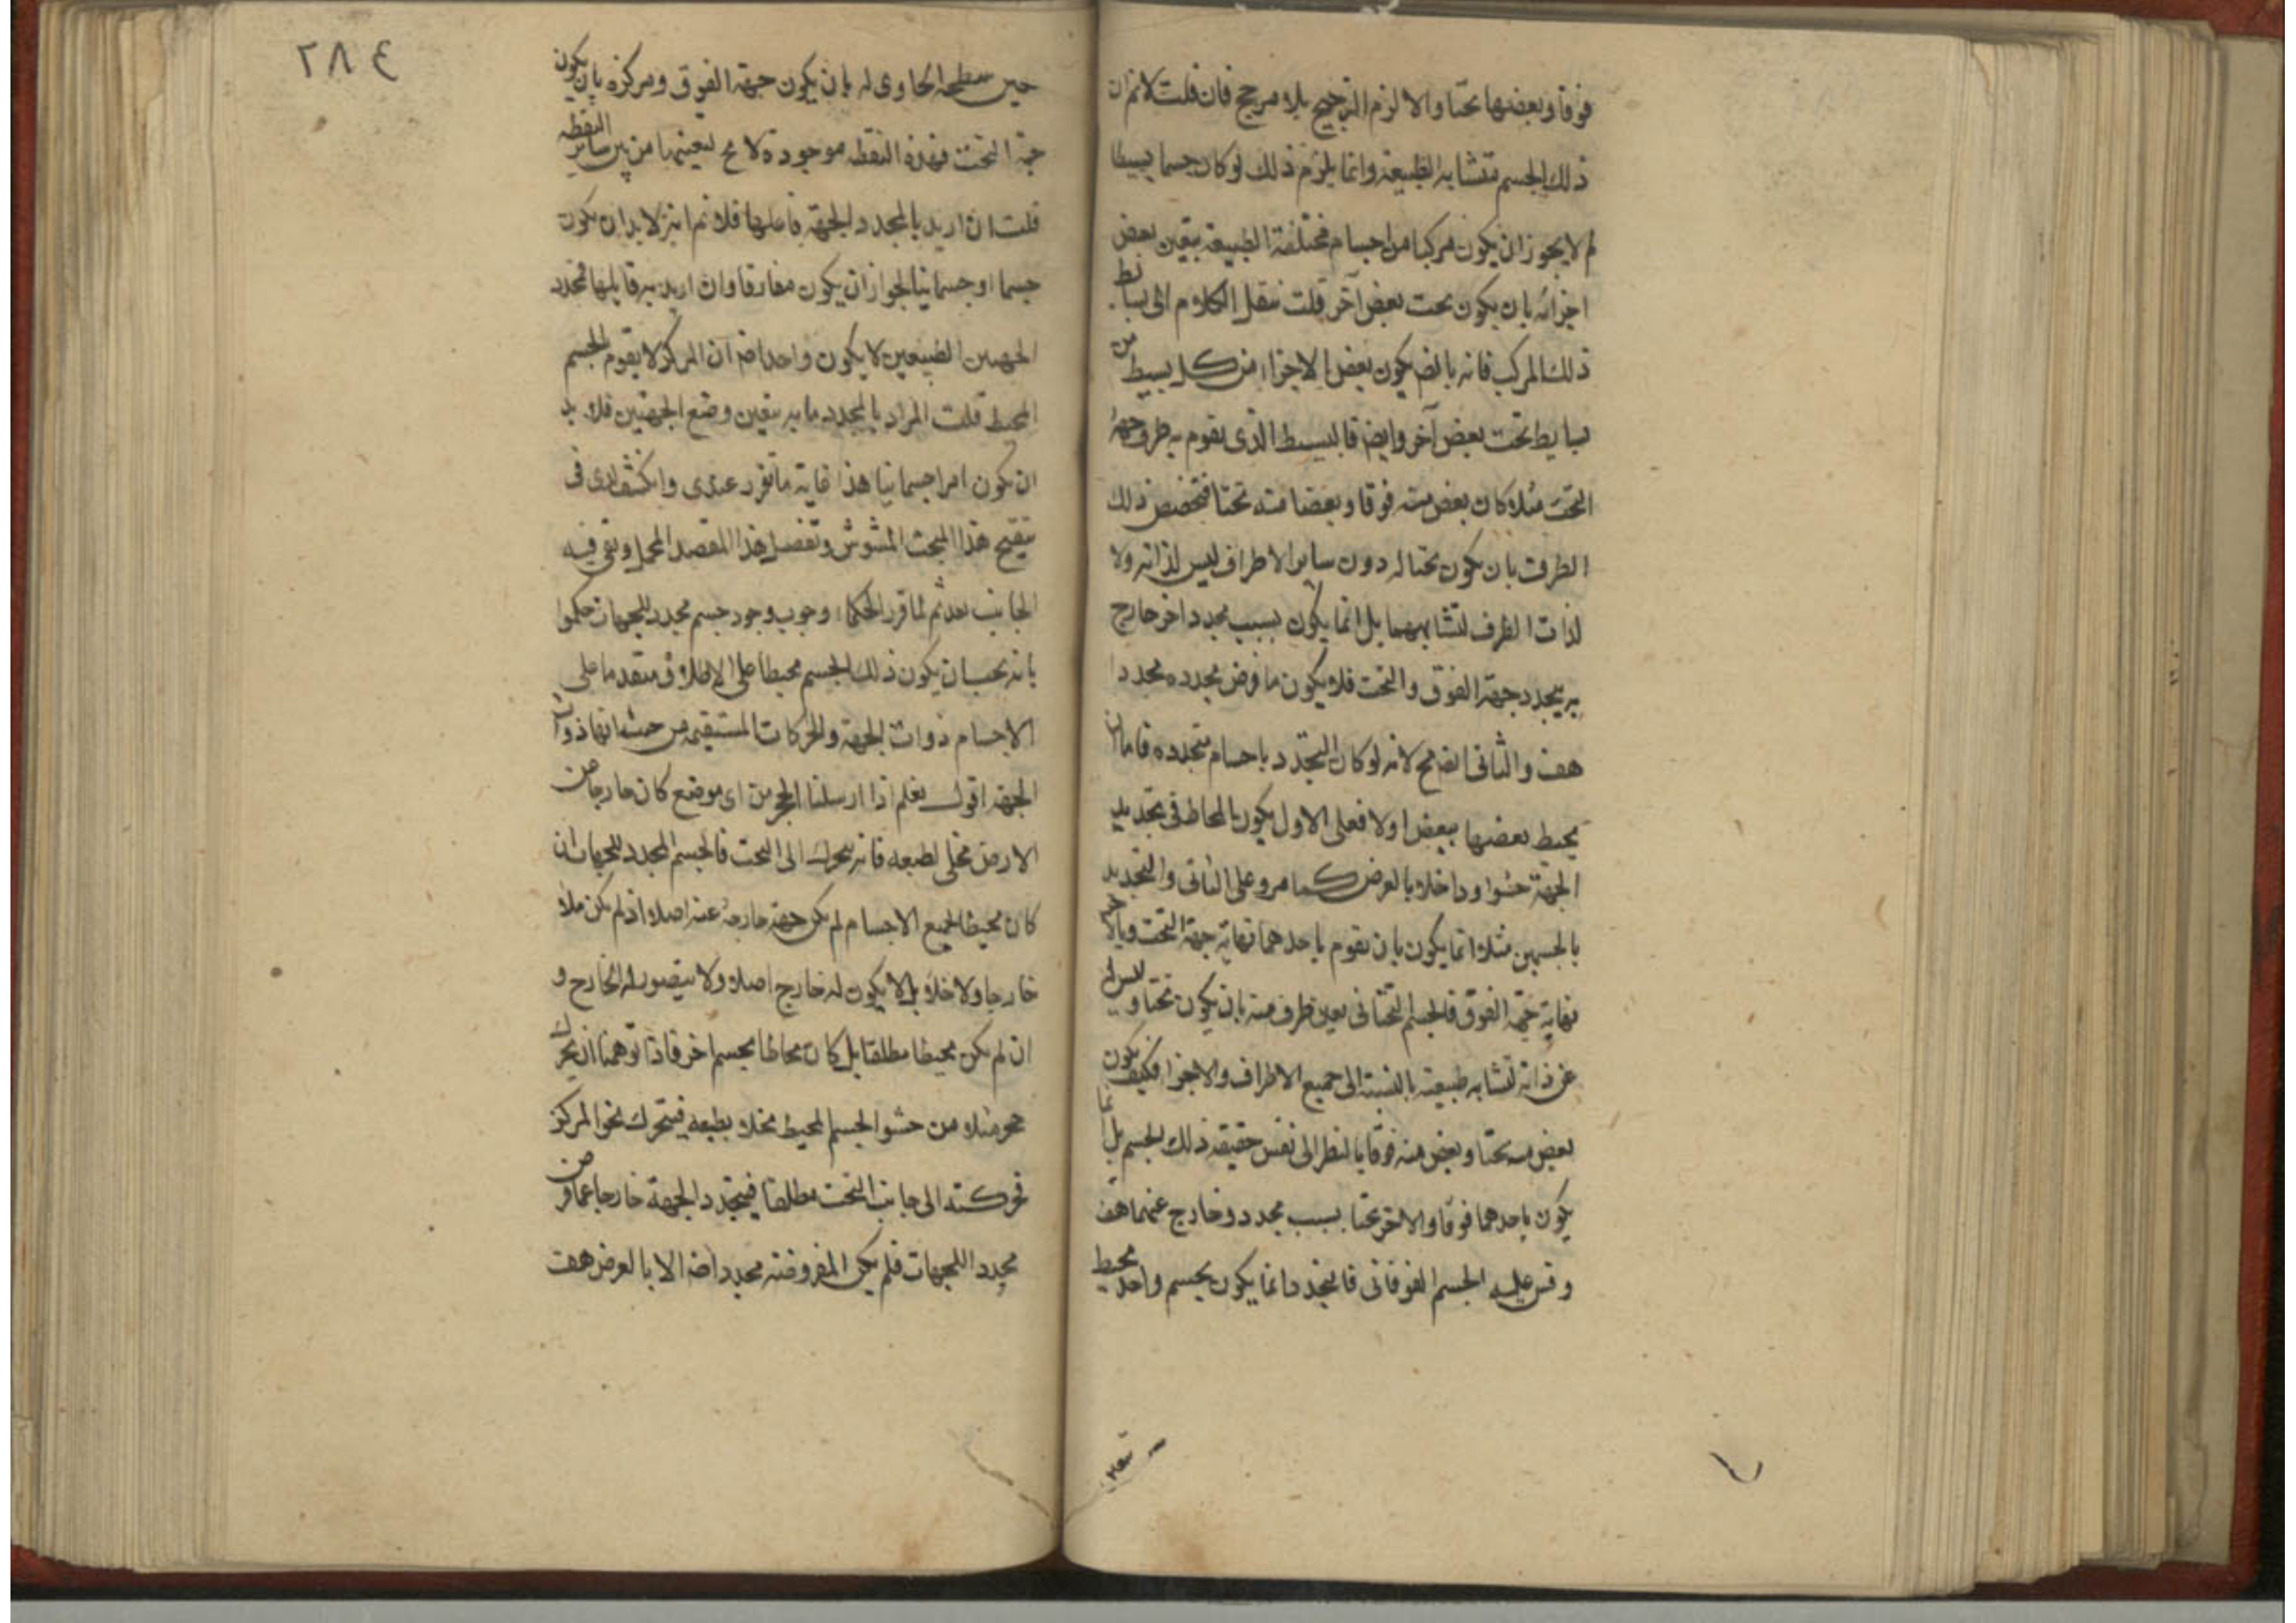 فوقا وبعضها تحتا والا لزم الترجيح بلا مرجح فان قلت لا نم ان
ذلك الجسم متشابه الطبيعة وانما يلزم ذلك لو كان جسما بسيطا
لم لا يجوز ان يكون مركبا من اجسام مختلفة الطبيعة يتعين بعض
اجزائه بان يكون تحت بعض آخر قلت ننقل الكلام الى بسائط
ذلك المركب فانه بالضـ يكون بعض الاجزاء من كل بسيط من
بسايط تحت بعض آخر وايضـ فالبسيط الذى يقوم به طرف جهة
التحت مثلا كان بعض منه فوقا وبعضا منه تحتا فتخصص ذلك
الطرف بان يكون تحتا له دون ساير الاطراف ليس لذاته ولا
لذات الطرف لتشابههما بل انما يكون بسبب محدد اخر خارج
به يتحدد جهة الفوق والتحت فلا يكون ما فرض محدده محددا
هف والثانى ايضـ مح لانه لو كان التحدد باجسام متحدده فاما ان
يحيط بعضها ببعض اولا فعلى الاول يكون المحاط فى تحديد
الجهة حشوا وداخلا بالعرض كما مر وعلى الثانى والتحديد
بالجسمين مثلا انما يكون بان يقوم باحدهما نهاية جهة التحت وبالاخر
نهاية جهة الفوق فالجسم التحتانى تعين طرف منه بان يكون تحتا وليس له
عن ذاته لتشابه طبيعته بالنسبة الى جميع الاطراف والاجزاء فكيف يكون
بعض منه تحتا وبعض منه فوقا بالنظر الى نفس حقيقة ذلك الجسم بل انما
يكون باحدهما فوقا والاخر تحتا بسبب محدد وخارج عنهما هف
وقس عليه الجسم الفوقانى فالتحدد انما يكون بجسم واحد محيط
٢٨٤
حين سطحه الحاوى له بان يكون جهة الفوق ومركزه بان يكون
جهة التحت فهذه النقطه موجودة لا مح لتعينها من بين ساير النقطه
قلت ان اريد بالمحدد الجهة فاعلها فلا نم انه لا بد ان يكون
جسما او جسمانيا لجواز ان يكون مفارقا وان اريد به قابلها فمحدد
الجهتين الطبيعين لا يكون واحدا ضـ ان المركز لا يقوم بالجسم
المحيط قلت المراد بالمحدد ما به يتعين وضع الجهتين فلا بد
ان يكون امرا جسمانيا هذا غاية ما تقرر عندى وانكشف لدى فى
تنقيح هذا المبحث المشوش وتفصيل هذا المقصد المجمل وبقى فيه
الجانب بعد ثم لما قرر الحكماء وجوب وجود جسم محدد للجهات حكموا
بانه يجب ان يكون ذلك الجسم محيطا على الاطلاق متقدما على
الاجسام ذوات الجهة والحركات المستقيمه من حيث انها ذوات
الجهة اقول نعلم اذا ارسلنا الحجر من اى موضع كان خارجا من
الارض مخلى لطبعه فانه يتحرك الى التحت فالجسم المحدد للجهات ان
كان محيطا لجميع الاجسام لم يكن جهة خارجة عنه اصلا اذ لم يكن ملاء
خارجا ولا خلاء بل لا يكون له خارج اصلا ولا يتصور له الخارج و
ان لم يكن محيطا مطلقا بل كان محاطا بجسم اخر فاذا توهمنا ان يحرك
حجر مثلا من حشو الجسم المحيط مخلا بطبعه فيتحرك نحو المركز
فحركته الى جانب التحت مطلقا فيتحدد الجهة خارجا عما فرض
محددا للجهات فلم يكن المفروضه محددا ضـ الا بالعرض هف